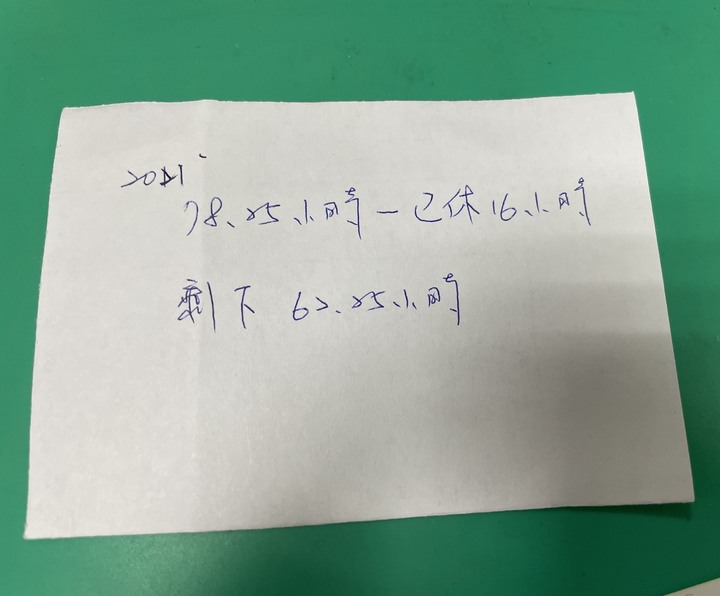 2021
78.25小時－已休16小時
剩下 62.25小時